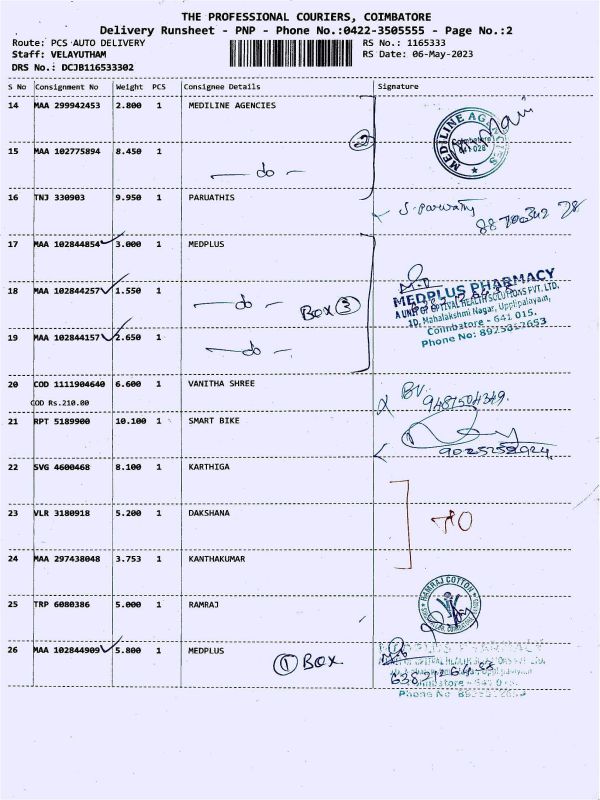 THE PROFESSIONAL COURIERS, COIMBATORE
Delivery Runsheet - PNP - Phone No.:0422-3505555 - Page No.:2
Route: PCS AUTO DELIVERY RS No.: 1165333
Staff: VELAYUTHAM RS Date: 06-May-2023
DRS No.: DCJB116533302
S No Consignment No Weight PCS Consignee Details Signature
14 MAA 299942453 2.800 1 MEDILINE AGENCIES
MEDILINE AGENCIES
Coimbatore
641 028
15 MAA 102775894 8.450 1
-do-
16 TNJ 330903 9.950 1 PARUATHIS
S. Parwathy
17 MAA 102844854 3.000 1 MEDPLUS
18 MAA 102844257 1.550 1
-do- BOX 3
MEDPLUS PHARMACY
A UNIT OF OPTIVAL HEALTH SOLUTIONS PVT. LTD.
1D, Mahalakshmi Nagar, Upplipalayam,
Coimbatore - 641 015.
19 MAA 102844157 2.650 1
-do-
20 COD 1111904640 6.600 1 VANITHA SHREE
COD Rs.210.00
BV.
9487504349.
21 RPT 5189900 10.100 1 SMART BIKE
22 SVG 4600468 8.100 1 KARTHIGA
23 VLR 3180918 5.200 1 DAKSHANA
24 MAA 297438048 3.753 1 KANTHAKUMAR
25 TRP 6080386 5.000 1 RAMRAJ
RAMRAJ COTTON
26 MAA 102844909 5.800 1 MEDPLUS
1 BOX